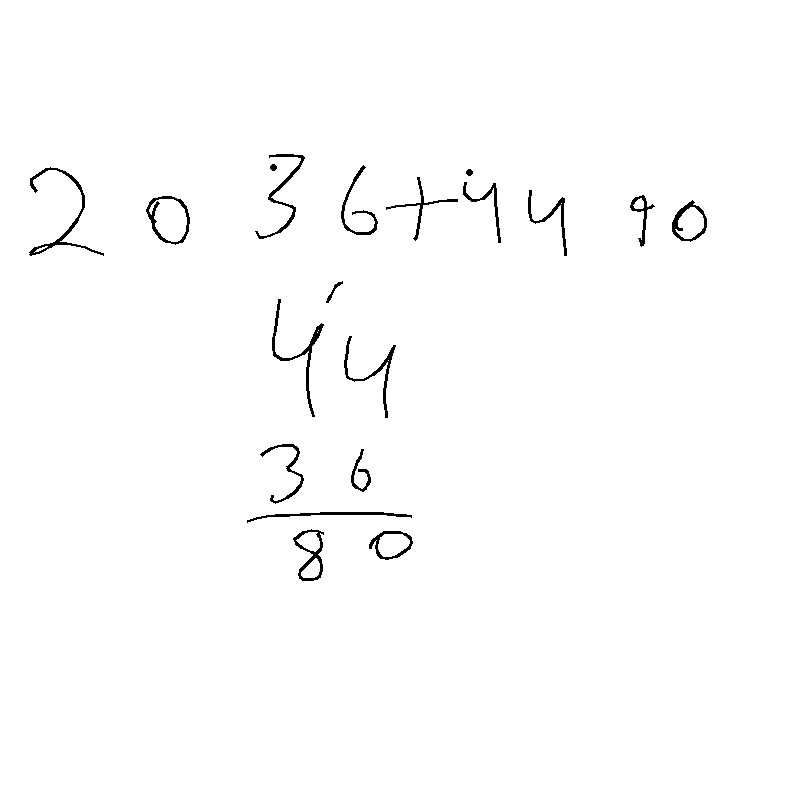 20 36+44 90
44
36
80